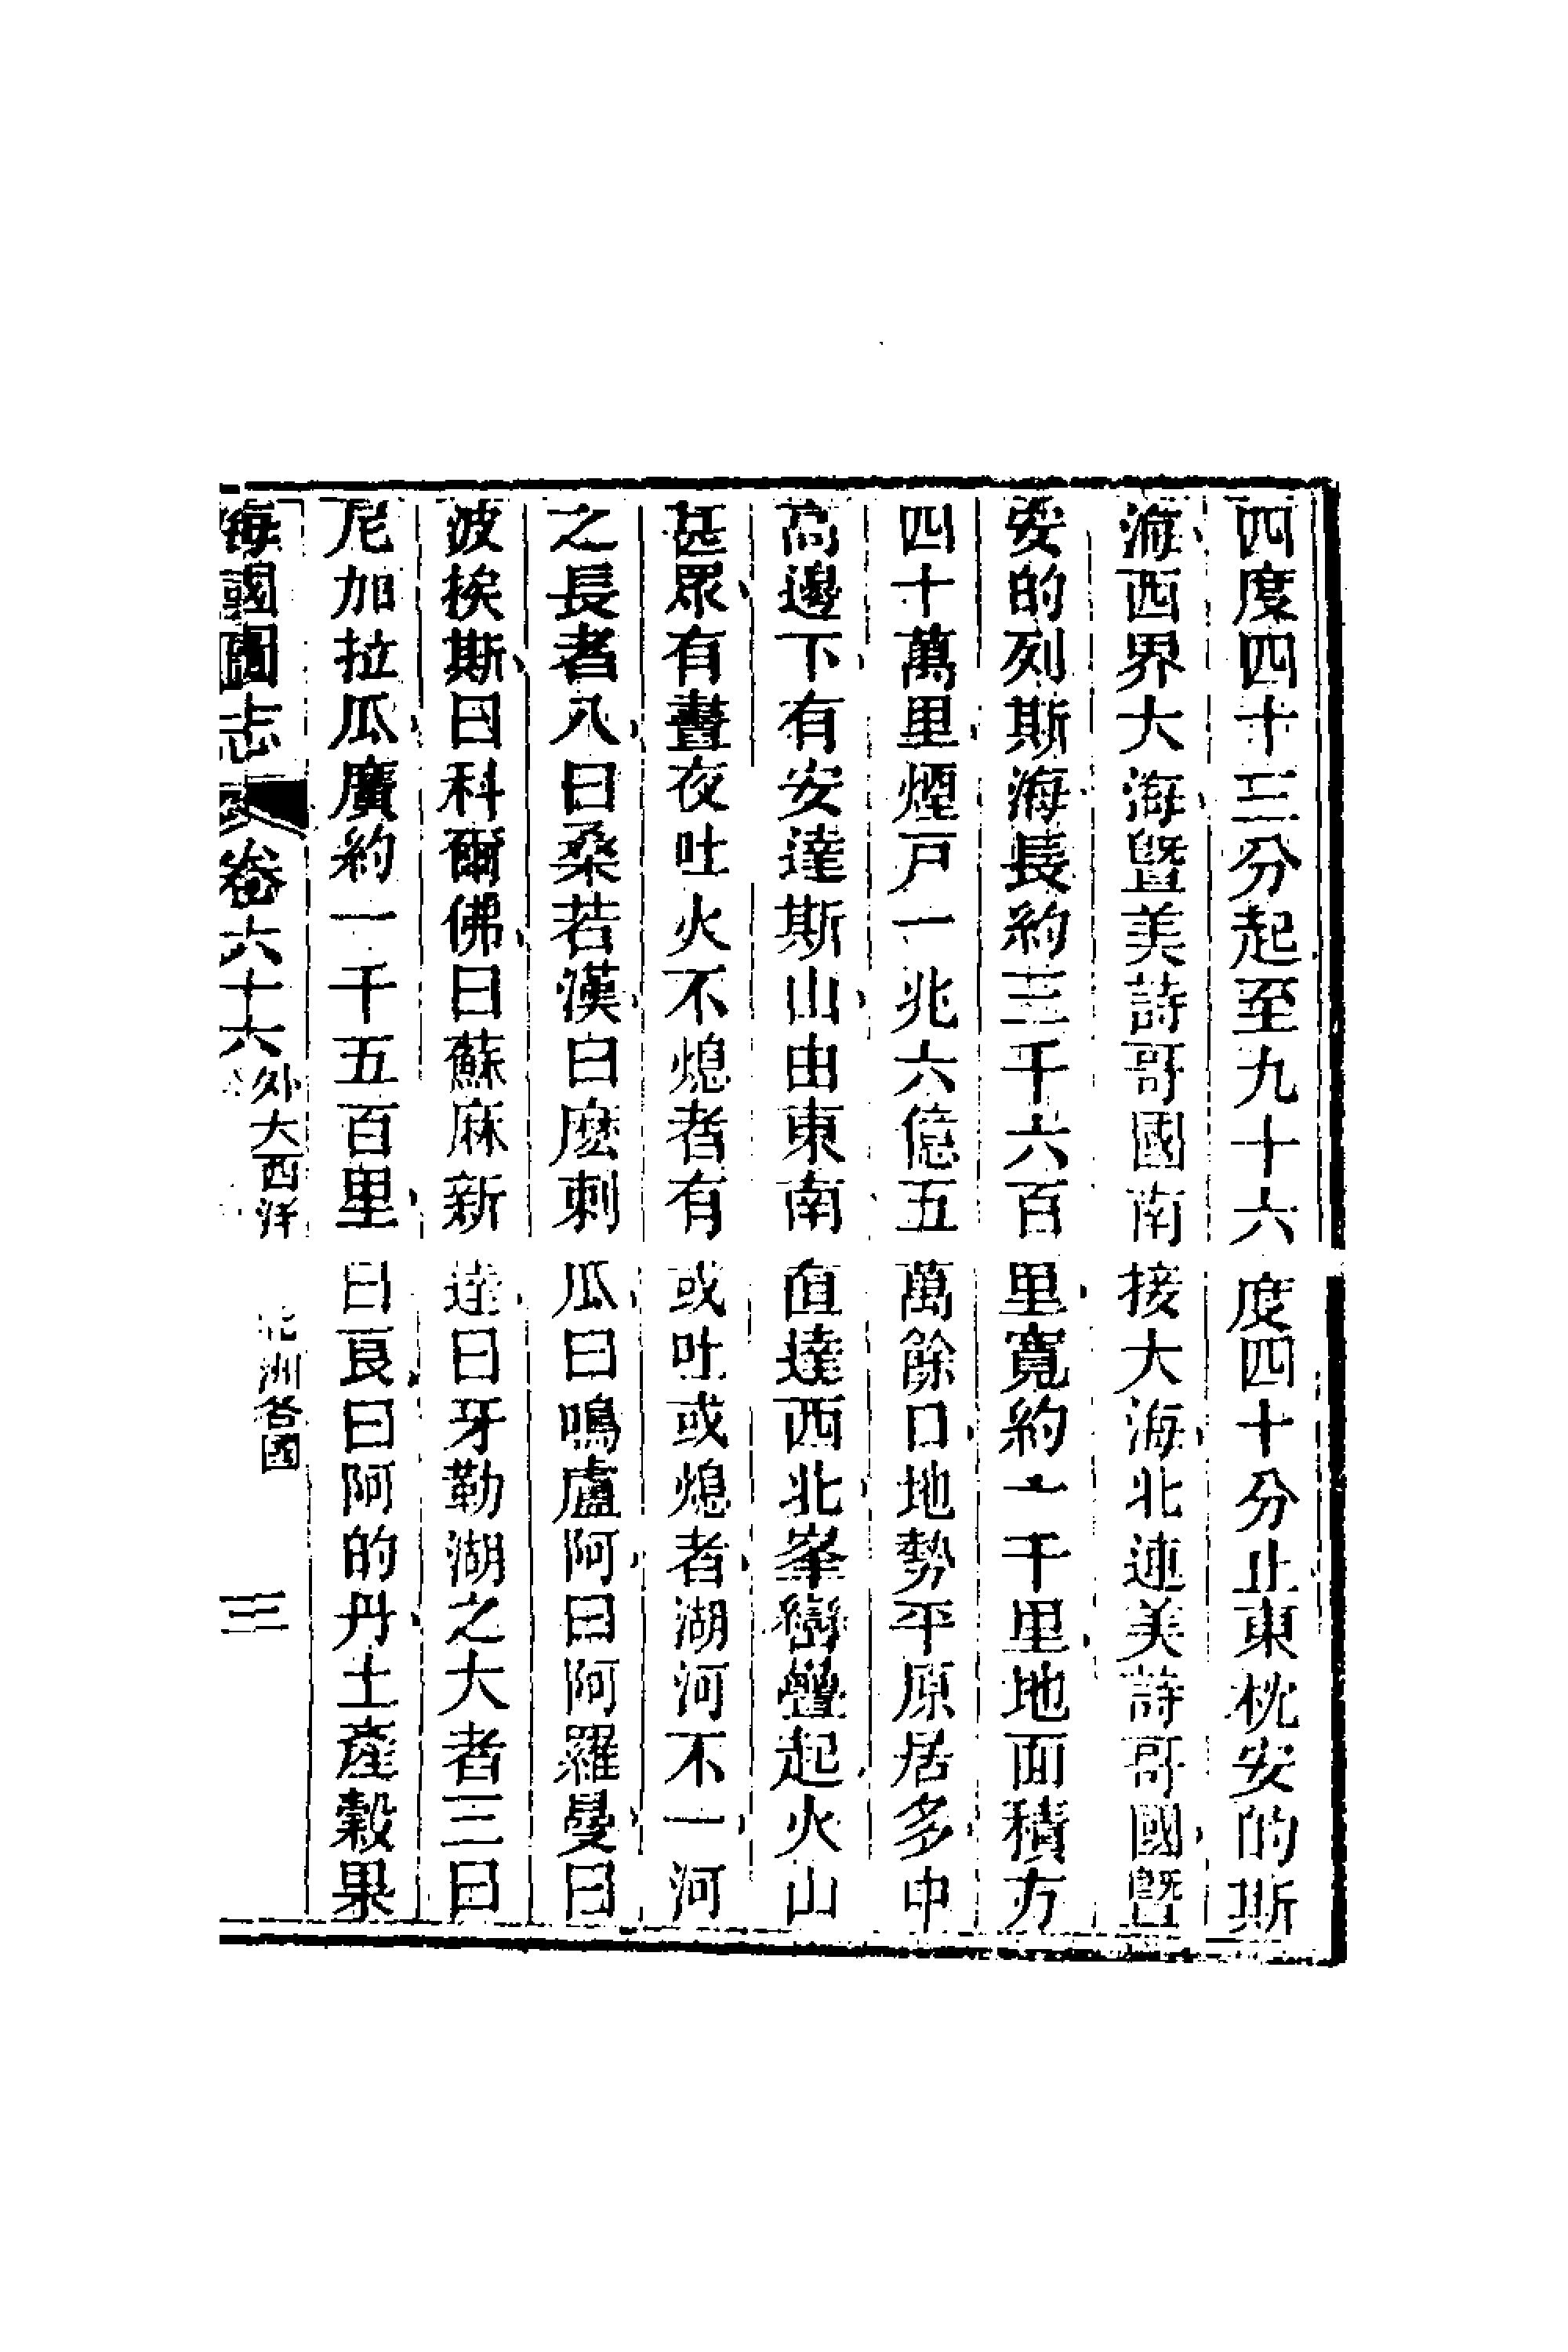 四度四十三分起至九十六度四十分止東枕安的斯
海西界大海曁美詩哥國南接大海北連美詩哥國曁
安的列斯海長約三千六百里寛約一千里地面積方
四十萬里煙戸一兆六億五萬餘口地勢平原居多中
高邊下有安達斯山由東南直達西北峯巒疊起火山
甚眾有晝夜吐火不熄者有或吐或熄者湖河不一河
之長者八曰桑若漢曰麽刺瓜曰鳴盧阿曰阿羅曼曰
波挨斯曰科爾佛曰蘇麻新達曰牙勒湖之大者三曰
尼加拉瓜廣約一千五百里曰艮曰阿的丹土產穀果
海國圖志 卷六十六 外大西洋 北洲各國 三